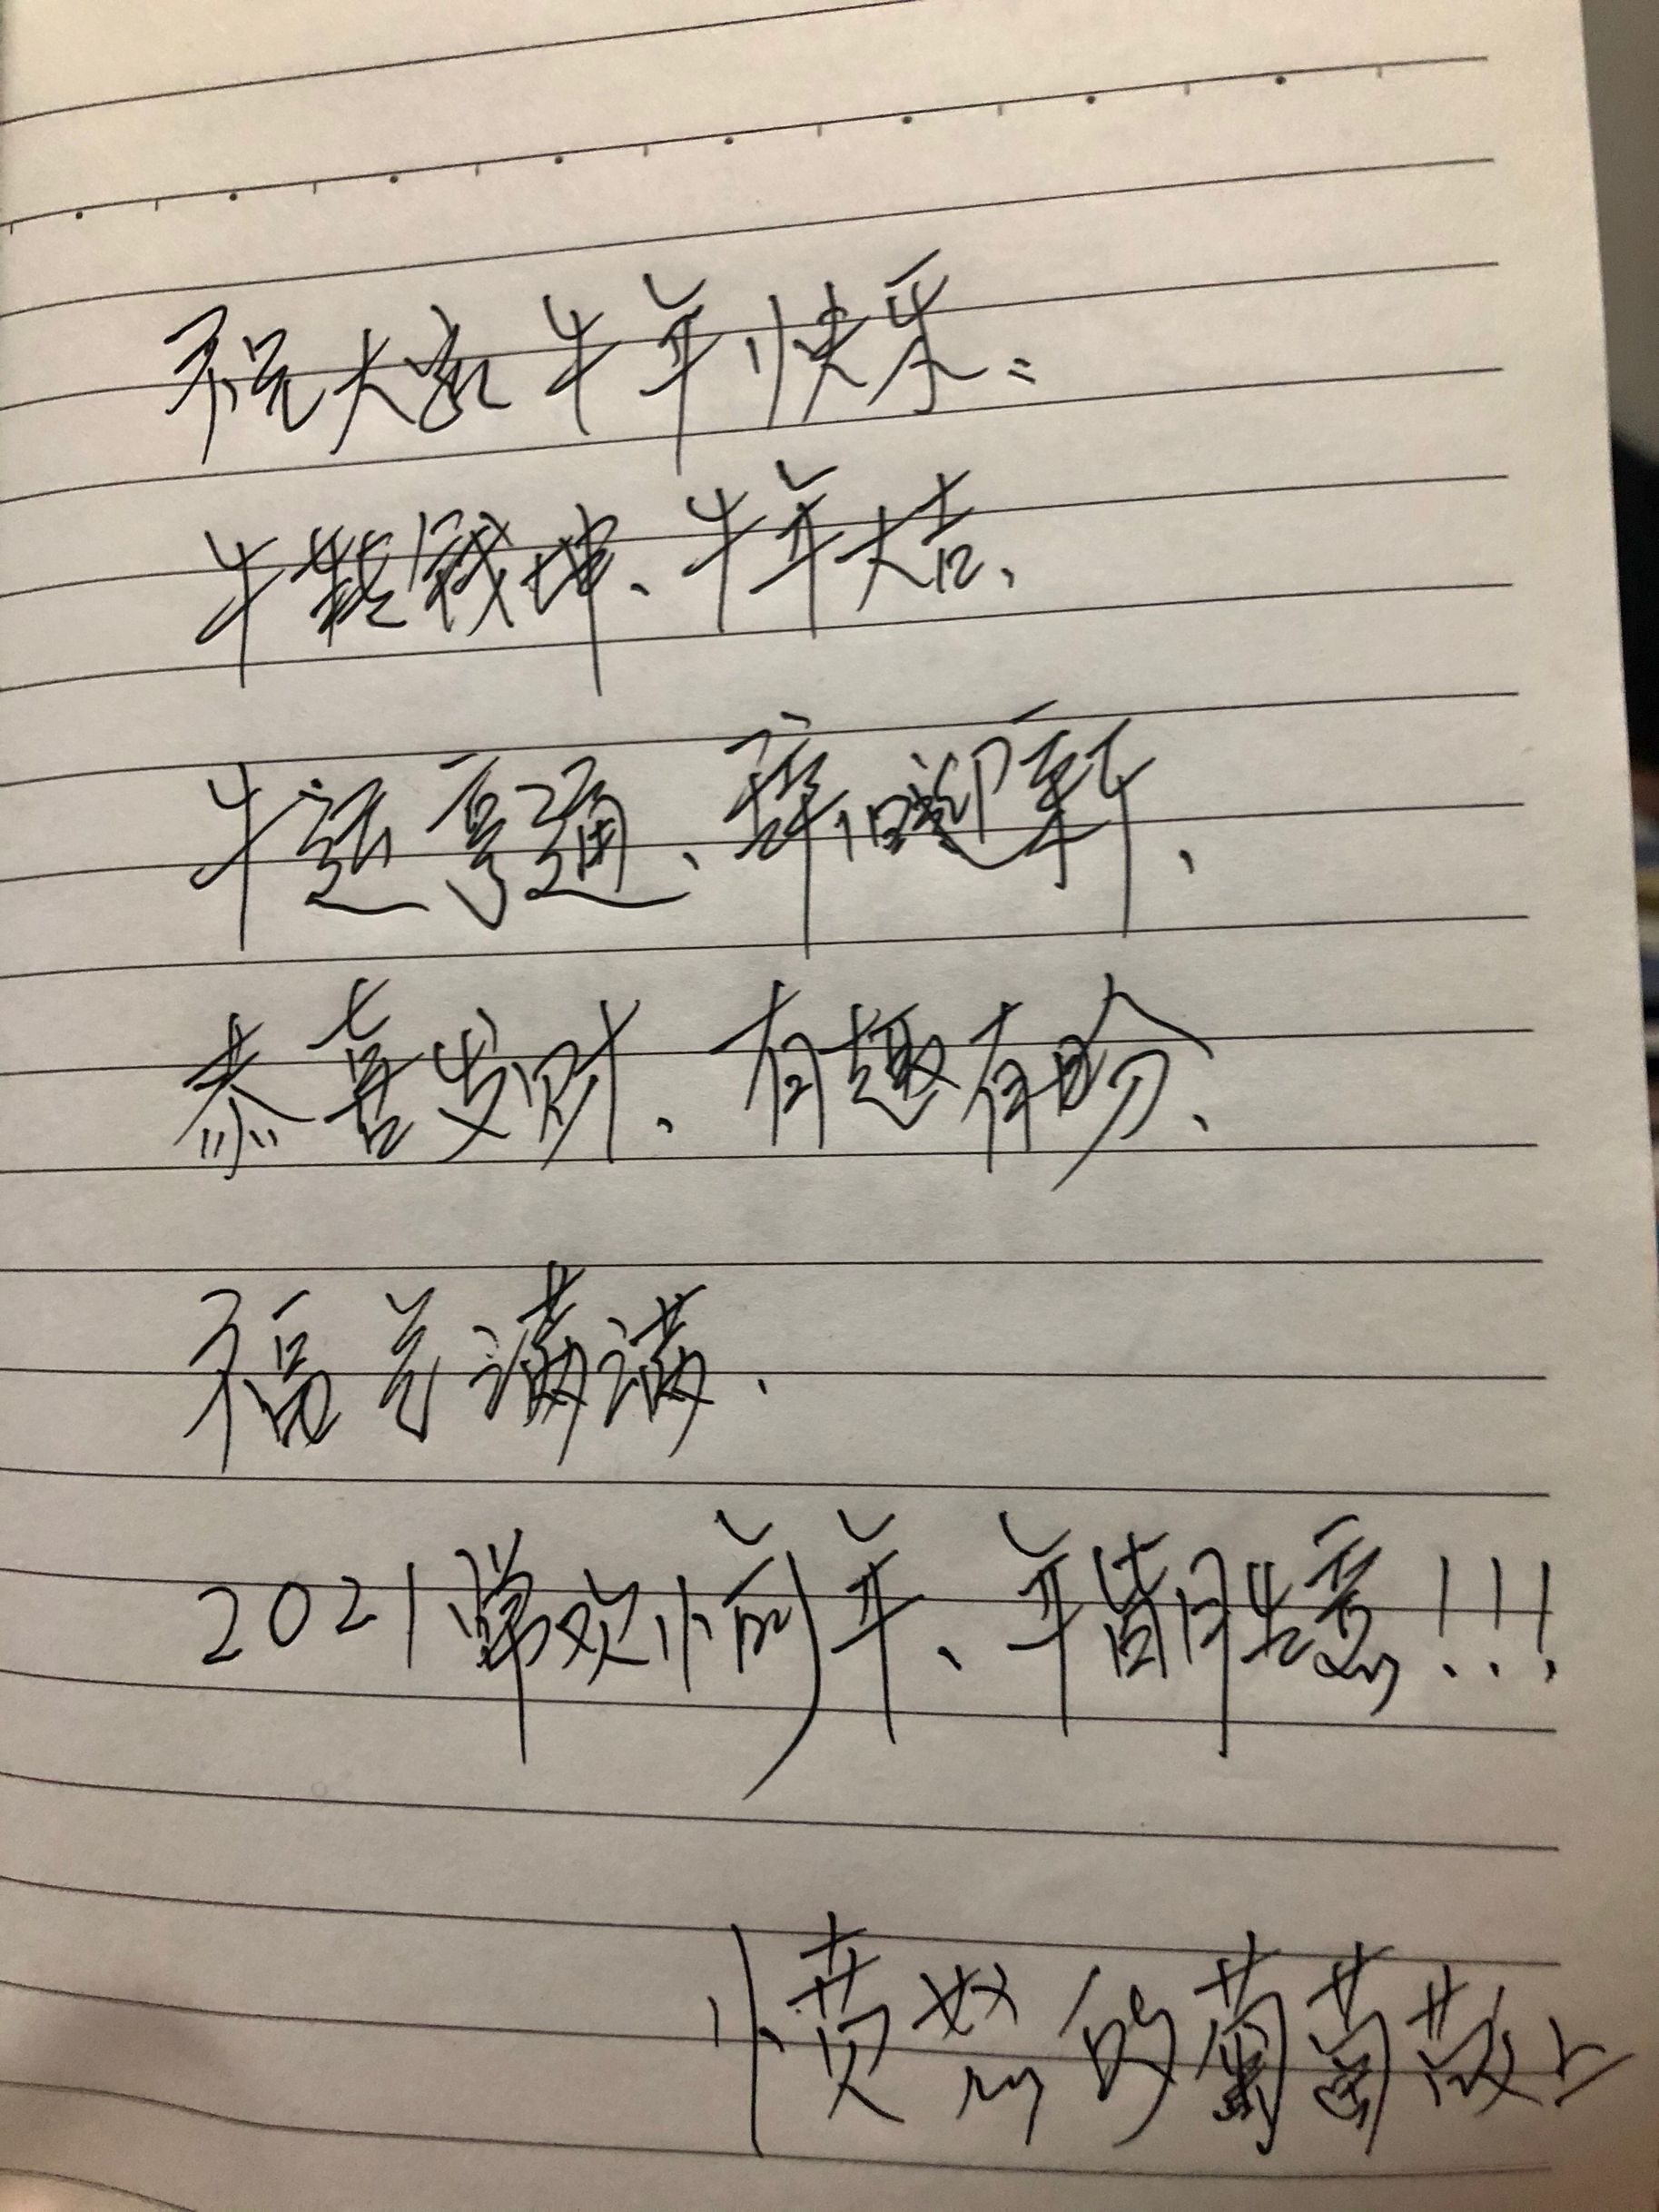 祝大家牛年快乐：
牛转乾坤、牛年大吉、
牛运亨通、辞旧迎新、
恭喜发财、有趣有盼、
福气满满、
2021辞旧前年、年皆胜意！！！
愤怒的葡萄敬上